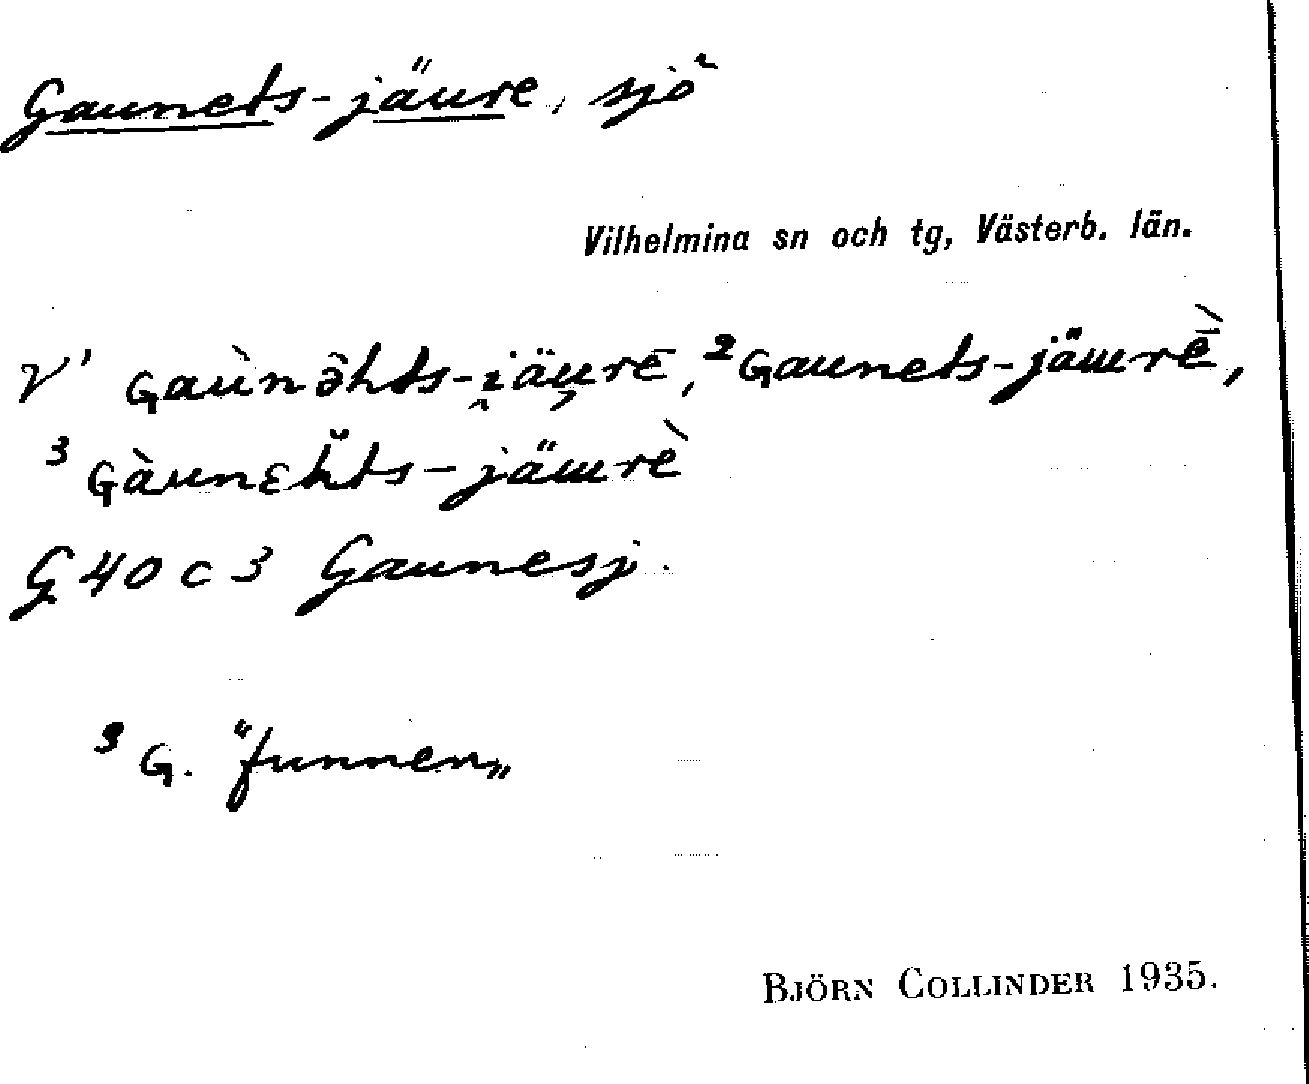 Gaunets-jäure, sjö
Vilhelmina sn och tg, Västerb. län.
V¹ Gaùnə̂hts-i̯äu̯rē, ²Gaunets-jäɯrḕ,
³ Gàunɛh̆ts-jäɯrè
G 40 c 3 Gaunesj.
³ G. "funnen„
BJÖRN COLLINDER 1935.